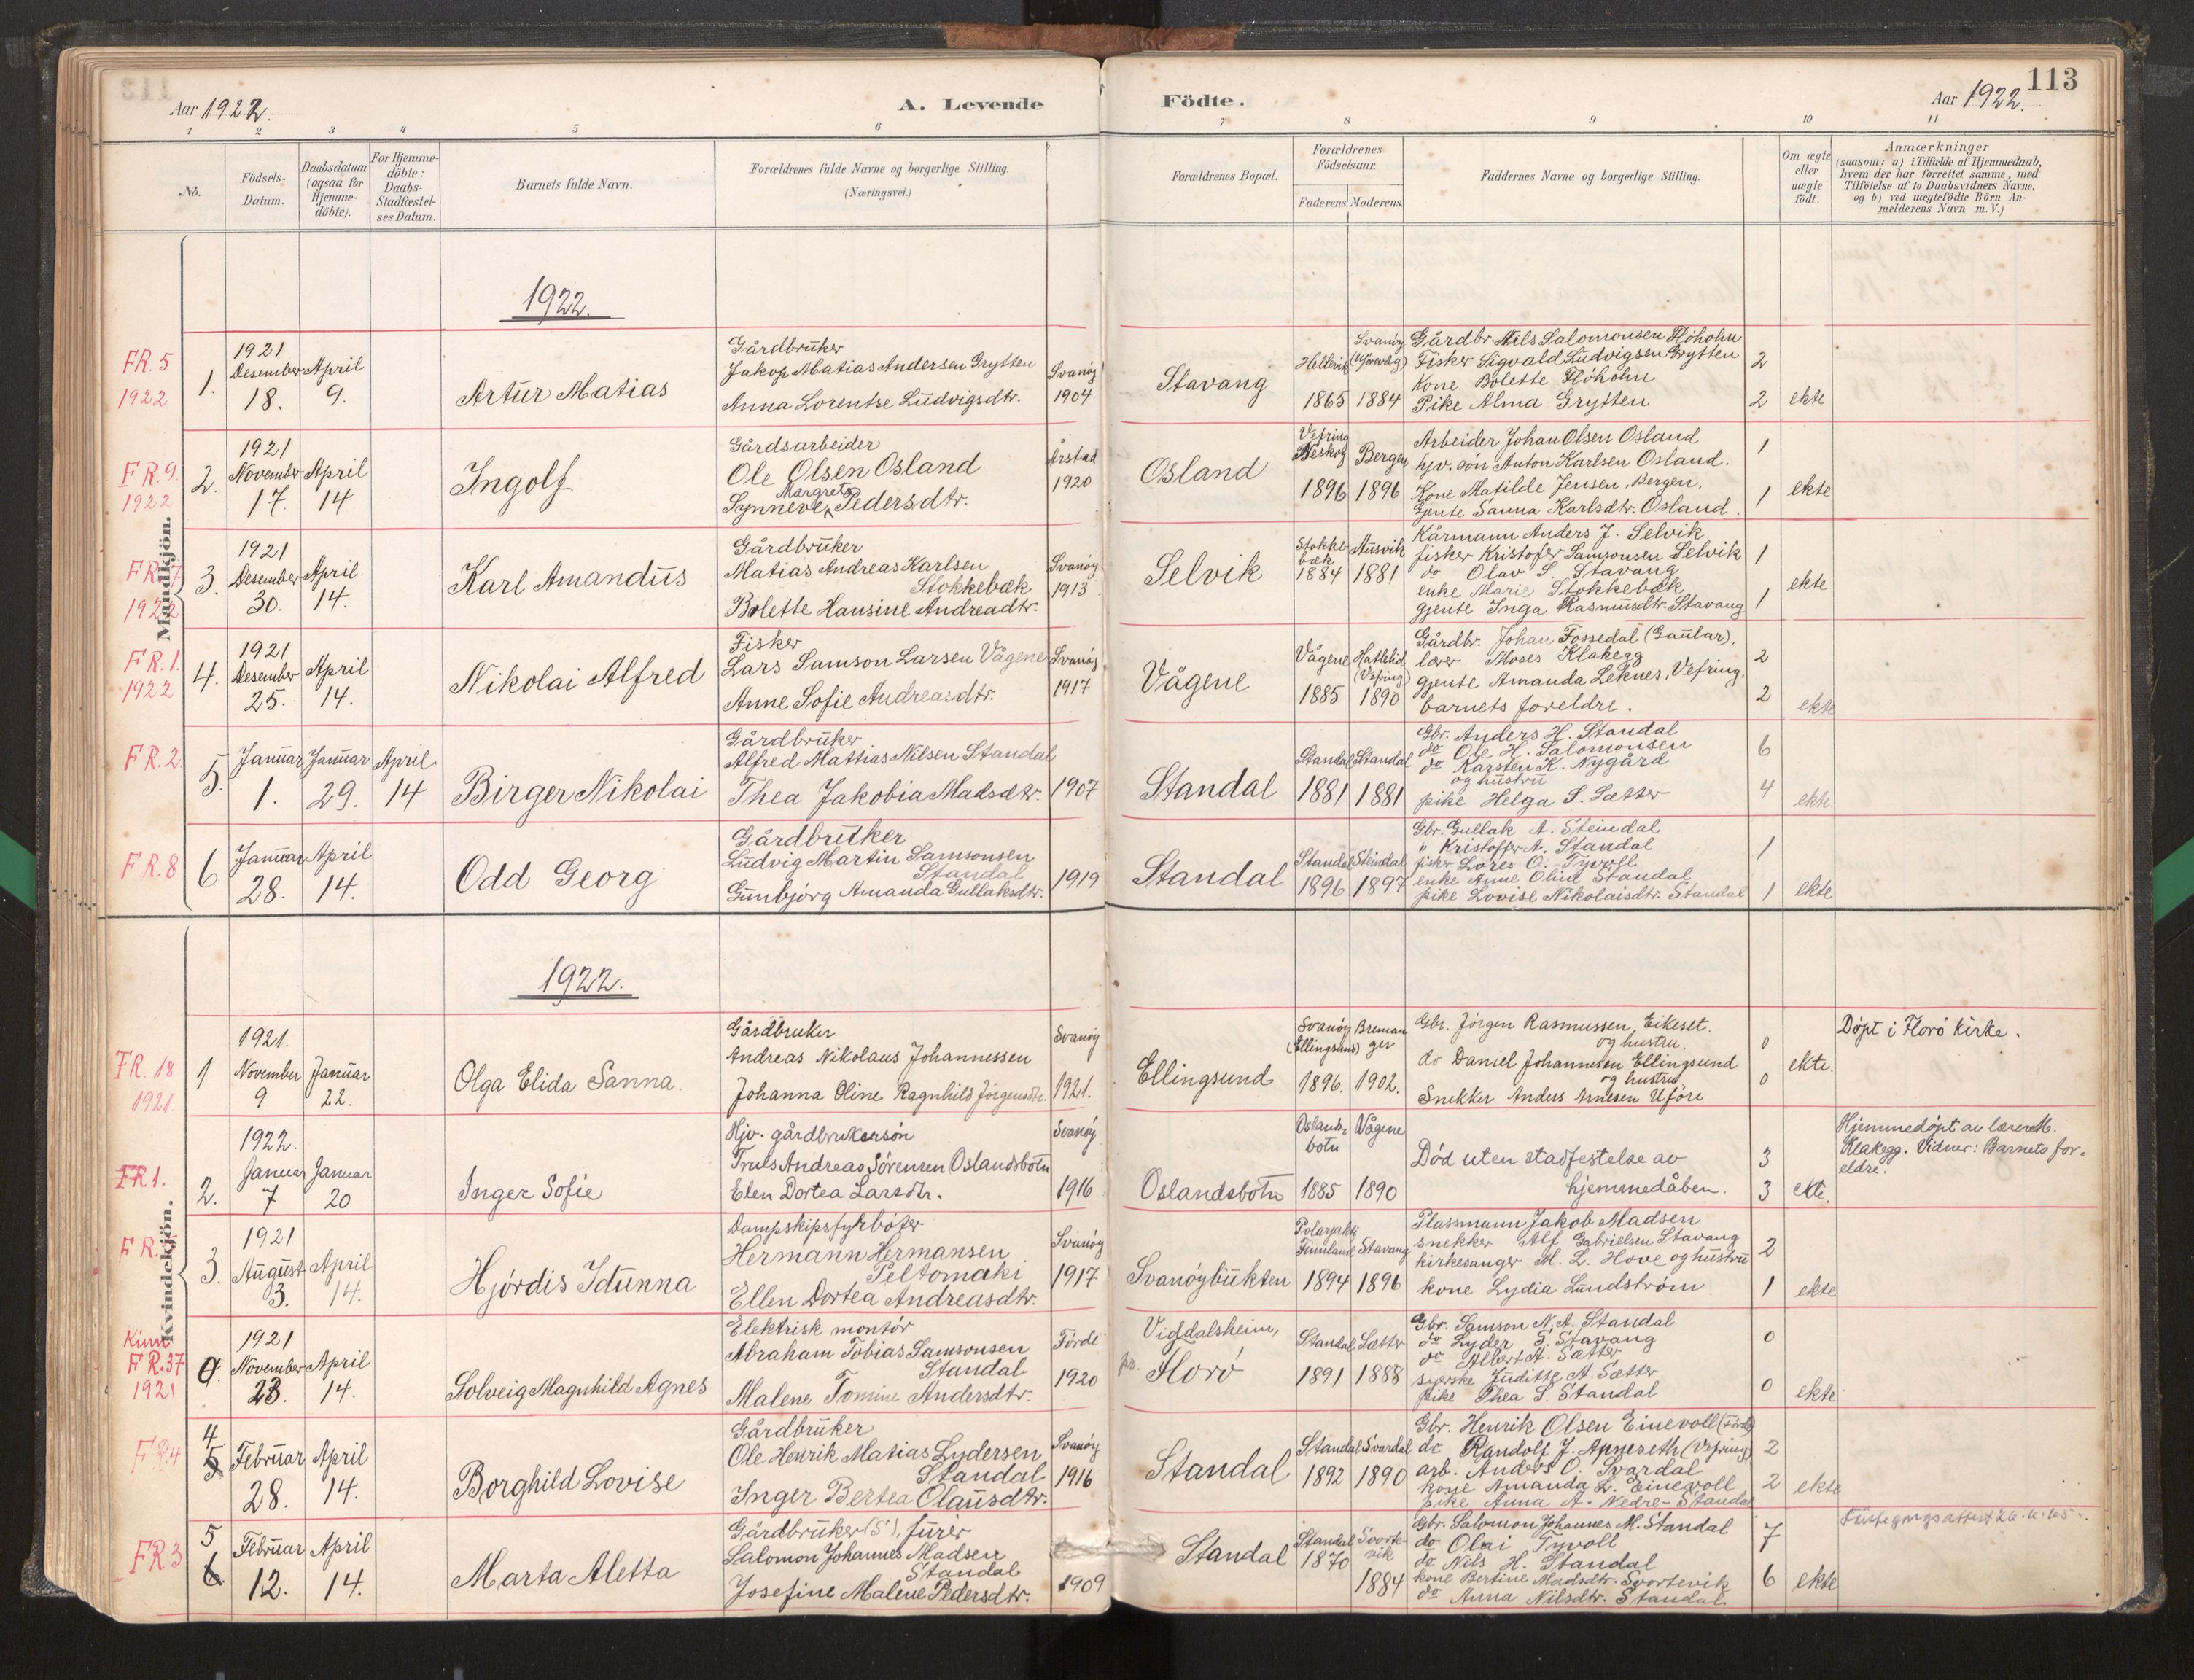 Aar 1922.
A. Levende
Födte.
Aar 1922.
113
1 2 3 4 5 6 7 8 9 10 11
No.
Födsels-
Datum.
Daabsdatum
(ogsaa for
Hjemme-
döbte).
For Hjemme-
döbte:
Daabs-
Stadfæstel-
ses Datum.
Barnets fulde Navn.
Forældrenes fulde Navne og borgerlige Stilling.
(Næringsvei.)
Forældrenes Bopæl.
Forældrenes
Födselsaar.
Faderens. Moderens.
Faddernes Navne og borgerlige Stilling.
Om ægte
eller
uægte
födt.
Anmærkninger
(saasom: a) i Tilfælde af Hjemmedaab,
hvem der har forrettet samme, med
Tilföielse af to Daabsvidners Navne,
og b) ved uægtefödte Börn An-
melderens Navn m. V.)
Mandkjön.
1922.
FR. 5
1922
1.
1921
Desember
18.
April
9.
Artur Matias
Gårdbruker
Jakop Matias Andersen Grytten
Anna Lorentse Ludvigsdtr.
Svanøy
1904
Stavang
Hellevik
1865
Svanøy
1884
Gårdbr. Nils Salomonsen Fløholm
Fisker Sigvald Ludvigsen Grytten
Kone Bolette Fløholm
Pike Alma Grytten
2
2
ekte
FR. 9.
1922
2.
1921
November
17.
April
14
Ingolf
Gårdsarbeider
Ole Olsen Osland
Margrete
Synneve Pedersdtr.
Årstad
1920
Osland
Vefring
1896
Bergen
1896
Arbeider Johan Olsen Osland
hjv. søn Anton Karlsen Osland.
Kone Matilde Jensen, Bergen,
Gjente Sanna Karlsdtr. Osland.
1
1
ekte
FR. 7
1922
3.
1921
Desember
30.
April
14.
Karl Amandus
Gårdbruker
Matias Andreas Karlsen
Stokkebæk
Bolette Hansine Andreadtr.
Svanøy
1913
Selvik
Stokke
bæk
1884
Ausvik
1881
Kårmann Anders J. Selvik
fisker Kristofer Samsonsen Selvik
do Olav S. Stavang
enke Marie Stokkebæk
gjente Inga Rasmusdtr. Stavang
1
1
ekte
FR. 1.
1922
4.
1921
Desember
25.
April
14.
Nikolai Alfred
Fisker
Lars Samson Larsen Vågene
Anne Sofie Andreasdtr.
Svanøy
1917
Vågene
Vågene
1885
Hatlelid
(Vefring)
1890
Gårdbr. Johan Fossedal (Gaular),
lærer Moses Klakegg
gjente Amanda Leknes, Vefring.
barnets foreldre.
2
2
ekte
FR. 2.
5.
Januar
1.
Januar
29.
April
14
Birger Nikolai
Gårdbruker
Alfred Mattias Nilsen Standal
Thea Jakobia Madsdtr.
1907
Standal
Standal
1881
Standal
1881
Gbr. Anders H. Standal
do Ole H. Salomonsen
do Karsten K. Nygård
og hustru
pike Helga S. Sætter
6
4
ekte
FR. 8
6
Januar
28.
April
14.
Odd Georg
Gårdbruker
Ludvig Martin Samsonsen
Standal
Gunbjørg Amanda Gullaksdtr.
1919
Standal
Standal
1896
Steindal
1897
Gbr. Gullak A. Steindal
" Kristoffer A. Standal
fisker Lares O. Tyvoll
enke Anne Oline Standal
pike Lovise Nikolaisdtr. Standal
1
1
ekte
Kvindekjön.
1922.
FR. 18
1921.
1
1921.
November
9
Januar
22.
Olga Elida Sanna.
Gårdbruker
Andreas Nikolaus Johannessen
Johanna Oline Ragnhild Jörgensdtr.
Svanøy
1921.
Ellingsund
Svanøy
(Ellingsund)
1896.
Breman
ger
1902.
Gbr. Jörgen Rasmussen, Eikeset.
og hustru.
do Daniel Johannesen Ellingsund
og hustru
Snekker Anders Arnesen Uföre
0
0
ekte.
Döpt i Florö kirke.
FR 1.
2.
1922.
Januar
7
Januar
20
Inger Sofie
Hjv. gårdbrukersön
Truls Andreas Sörensen Oslandsbotn
Elen Dortea Larsdtr.
Svanøy
1916
Oslandsbotn
Oslands-
botn
1885
Vågene
1890
Död uten stadfestelse av
hjemmedåben.
3
3
ekte.
Hjemmedöpt av lærer M.
Klakegg. Vidner: Barnets for-
eldre.
FR.
3.
1921
August
3.
April
14.
Hjördis Idunna
Dampskipsfyrböter
Hermann Hermansen
Peltomaki
Ellen Dortea Andreasdtr.
Svanøy
1917
Svanøybukten
Finnland
1894
Stavang
1896
Plassmann Jakob Madsen
snekker Alf Gabrielsen Stavang
kirkesanger M. L. Hove og hustru
kone Lydia Lundström
2
1
ekte
Kinn
FR. 37
1921
1921
November
23.
April
14.
Solveig Magnhild Agnes
Elektrisk montör
Abraham Tobias Samsonsen
Standal
Malene Tomine Andersdtr.
Förde
1920
Viddalsheim,
pr. Florö
Standal
1891
Sætter
1888
Gbr. Samson N. A. Standal
do Lyder S. Stavang
do Albert A. Sætter
syerske Juditte A. Sætter
pike Thea S. Standal
0
0
ekte
FR. 4
4
5
Februar
28.
April
14.
Borghild Lovise
Gårdbruker
Ole Henrik Matias Lydersen
Standal
Inger Bertea Olausdtr.
Svanøy
1916
Standal
Standal
1892
Svardal
1890
Gbr. Henrik Olsen Einevoll (Förde)
do Randolf J. Apneseth (Vefring)
arb. Anders O. Svardal
kone Amanda L. Einevoll
pike Anna A. Nedre-Standal
2
2
ekte
FR 3
5
6
Februar
12.
April
14.
Marta Aletta
Gårdbruker (S), furer
Salomon Johannes Madsen
Standal
Josefine Malene Pedersdtr.
1909
Standal
Standal
1870
Svorte-
vik
1884
Gbr. Salomon Johannes M. Standal
do Olai Tyvoll
do Nils H. Standal
kone Bertine Madsdtr. Svortevik
do Anna Nilsdtr. Standal
7
6
ekte